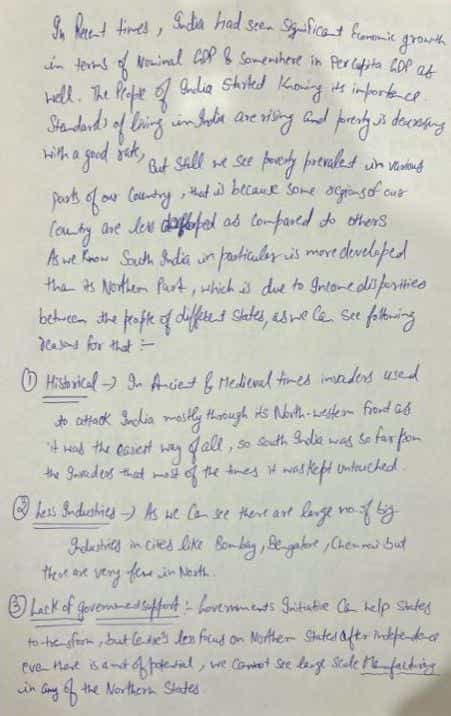 In Recent times, India had seen Significant Economic growth
in terms of Nominal GDP & somewhere in Per Capita GDP as
well. The People of India Started Knowing its importance.
Standards of living in India are rising and poverty is decreasing
with a good rate, But still we see poverty prevalent in various
parts of our Country, that is because some regions of our
Country are less developed as compared to others
As we Know South India in particular is more developed
than its Northern Part, which is due to Income disparities
between the people of different states, as we Can See following
reasons for that :-
① Historical → In Ancient & Medieval times invaders used
to attack India mostly through its North-western front as
it was the easiest way of all, so South India was so far from
the Invaders that most of the times it was kept untouched.
② Less Industries → As we Can see there are large no. of big
Industries in cities like Bombay, Bengalore, Chennai but
there are very few in North.
③ Lack of government support :- Governments Initiative Can help States
to transform, but less focus on Northern States after independence
even there is a lot of potential, we cannot see large scale Manufacturing
in any of the Northern States.